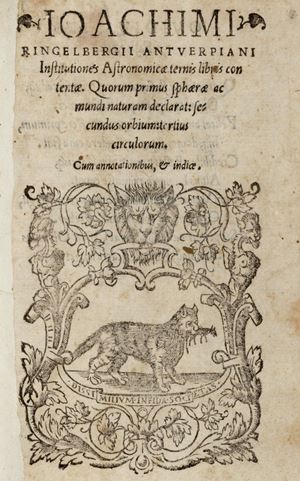 IOACHIMI
RINGELBERGII ANTVERPIANI
Institutiones Astronomicæ ternis libris con
tentæ. Quorum primus sphæræ ac
mundi naturam declarat: se
cundus orbium: tertius
circulorum.
Cum annotationibus, & indice.
DISSI MILIVM INFIDA SOCIETAS